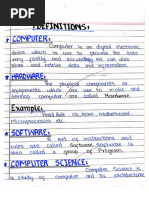 DEFINITIONS:
COMPUTER:
Computer is an digital electronic
device which is use to process the data
very fastly and accurately. We can also
store and retrive data and information.
HARDWARE:
The physical components as
equipments which can use to move and
develop computer are called Hardware.
Example:
Hard Disk, CD, RAM, Motherboard,
Microprocessor etc
SOFTWARE:
A set of instructions and
rules are called Software. Software is
also a group of Programs.
COMPUTER SCIENCE:
Computer Science is
a study of computer and its architecture